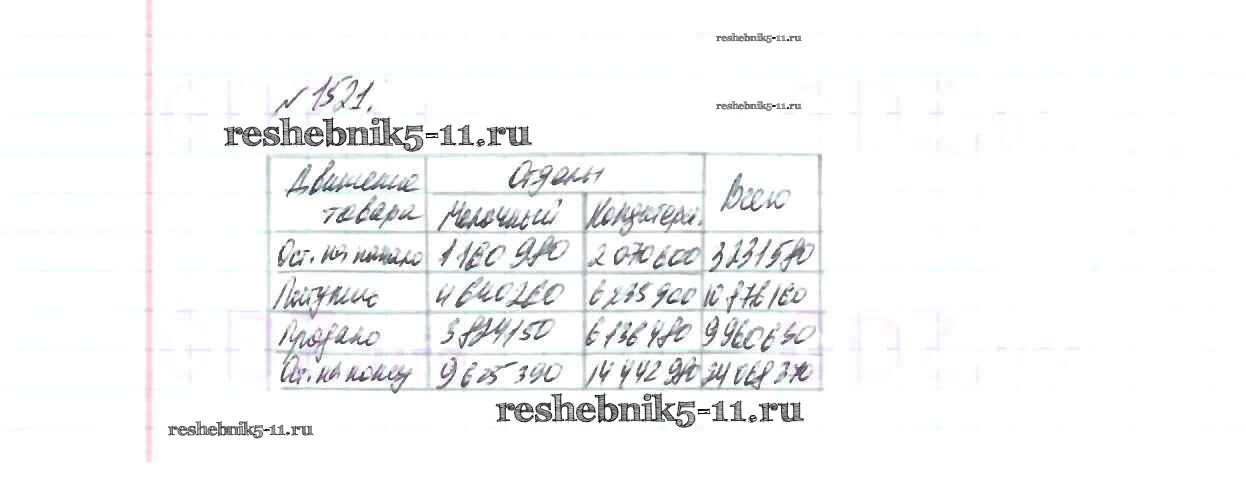 reshebnik5-11.ru
№1521.
reshebnik5-11.ru
reshebnik5-11.ru
Движение товара Отделы Всего
Молочный Кондитерск.
Ост. на начало 1160980 2070600 3231580
Поступило 4640260 6235900 10876160
Продано 3824150 6136480 9960630
Ост. на конец 9625390 14442980 24068370
reshebnik5-11.ru
reshebnik5-11.ru